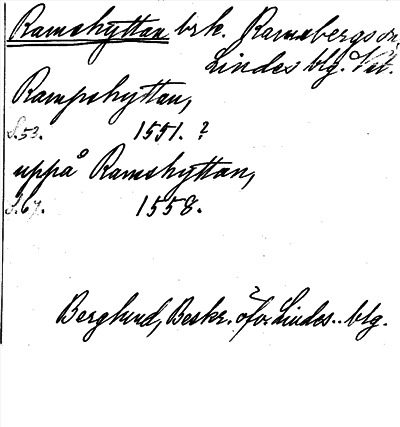 Ramshyttan brk. Ramsbergs sn,
Lindes blg. Vst.
Rampshyttan,
S. 53. 1551. ?
uppå Ramshyttan,
S. 67. 1558.
Berglund, Beskr. öfv. Lindes.. blg.